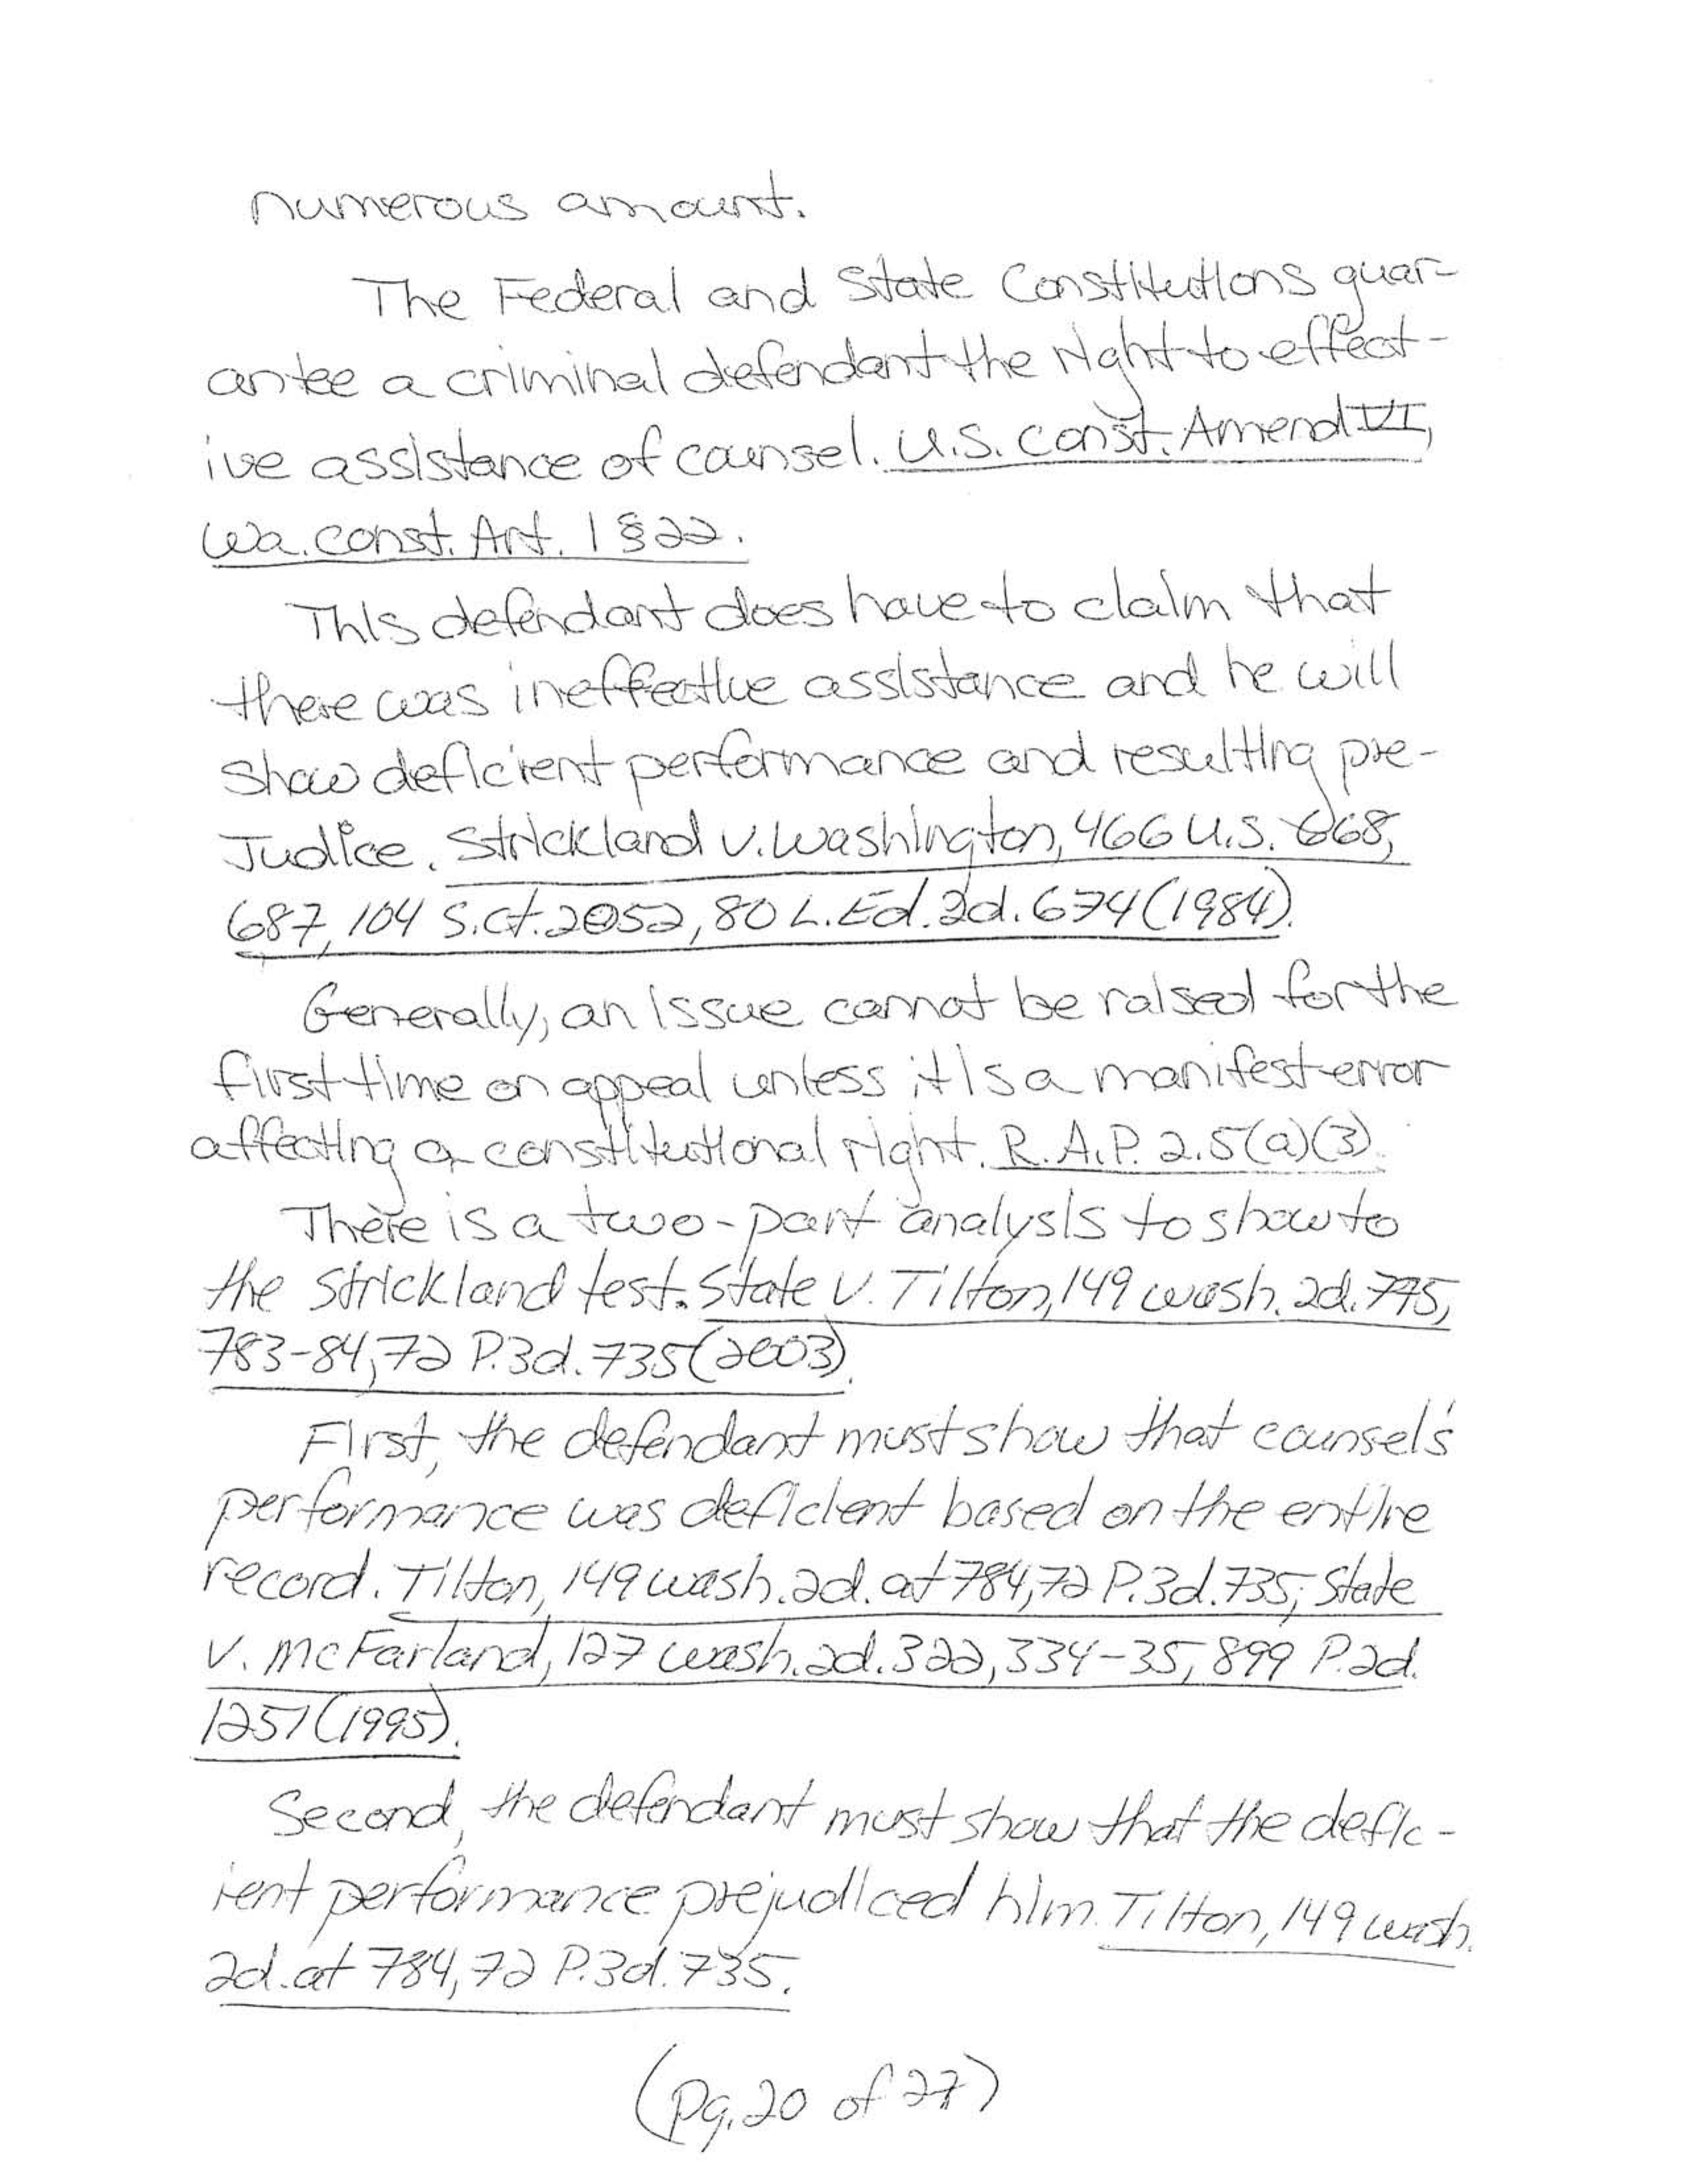 numerous amount.
The Federal and State Constitutions guar-
antee a criminal defendant the right to effect-
ive assistance of counsel. U.S. Const. Amend VI,
Wa. Const. Art. 1 § 22.
This defendant does have to claim that
there was ineffective assistance and he will
show deficient performance and resulting pre-
Judice. Strickland v. Washington, 466 U.S. 668,
687, 104 S.Ct. 2052, 80 L.Ed. 2d. 674 (1984).
Generally, an issue cannot be raised for the
first time on appeal unless it is a manifest error
affecting a constitutional right. R.A.P. 2.5(a)(3).
There is a two-part analysis to show to
the Strickland test. State v. Tilton, 149 Wash. 2d. 775,
783-84, 72 P.3d. 735 (2003).
First, the defendant must show that counsel's
performance was deficient based on the entire
record. Tilton, 149 Wash. 2d. at 784, 72 P.3d. 735; State
v. McFarland, 127 Wash. 2d. 322, 334-35, 899 P.2d.
1251 (1995).
Second, the defendant must show that the defic-
ient performance prejudiced him. Tilton, 149 Wash.
2d. at 784, 72 P.3d. 735.
(pg. 20 of 27)